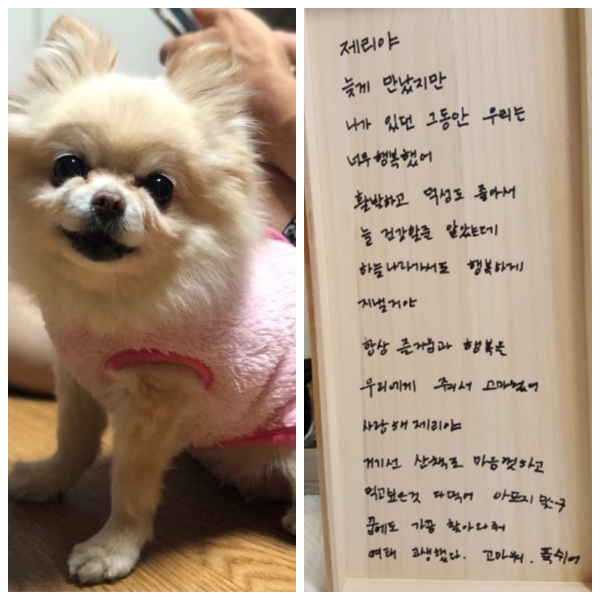 제리야
늦게 만났지만
니가 있던 그동안 우리는
너무행복했어
활발하고 먹성도 좋아서
늘 건강할줄 알았는데
하늘나라가서도 행복하게
지낼거야
항상 즐거움과 행복을
우리에게 주워서 고마웠어
사랑해 제리야
거기선 산책도 마음껏하고
먹고싶은것 다먹어 아프지 맞구
꿈에도 가끔 찾아와줘
여태 고생했다. 고마워. 푹쉬어